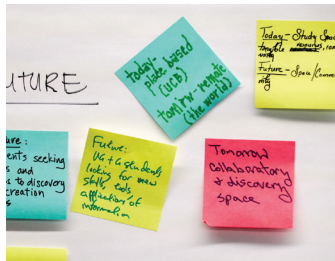 FUTURE
today-
place based
(UCB)
tomrw-remote
(the world)
Today - Study Space
tangible
Future - Space/Comm
nity
ure:
ents seeking
s and
s to discovery
creation
Future:
UG + G students
looking for new
skills, tools
application of
information
Tomorrow
collaboratory
+ discovery
space